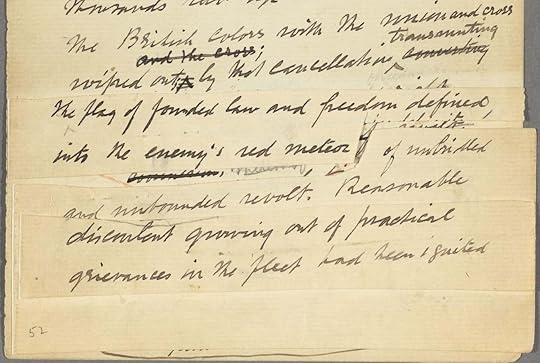 thousands
the British colors with the union and cross
and the cross; transmuting
wiped out by that cancellation, converting
the flag of founded law and freedom defined,
into the enemy's red meteor of unbridled
and unbounded revolt. Reasonable
discontent growing out of practical
grievances in the fleet had been ignited
52